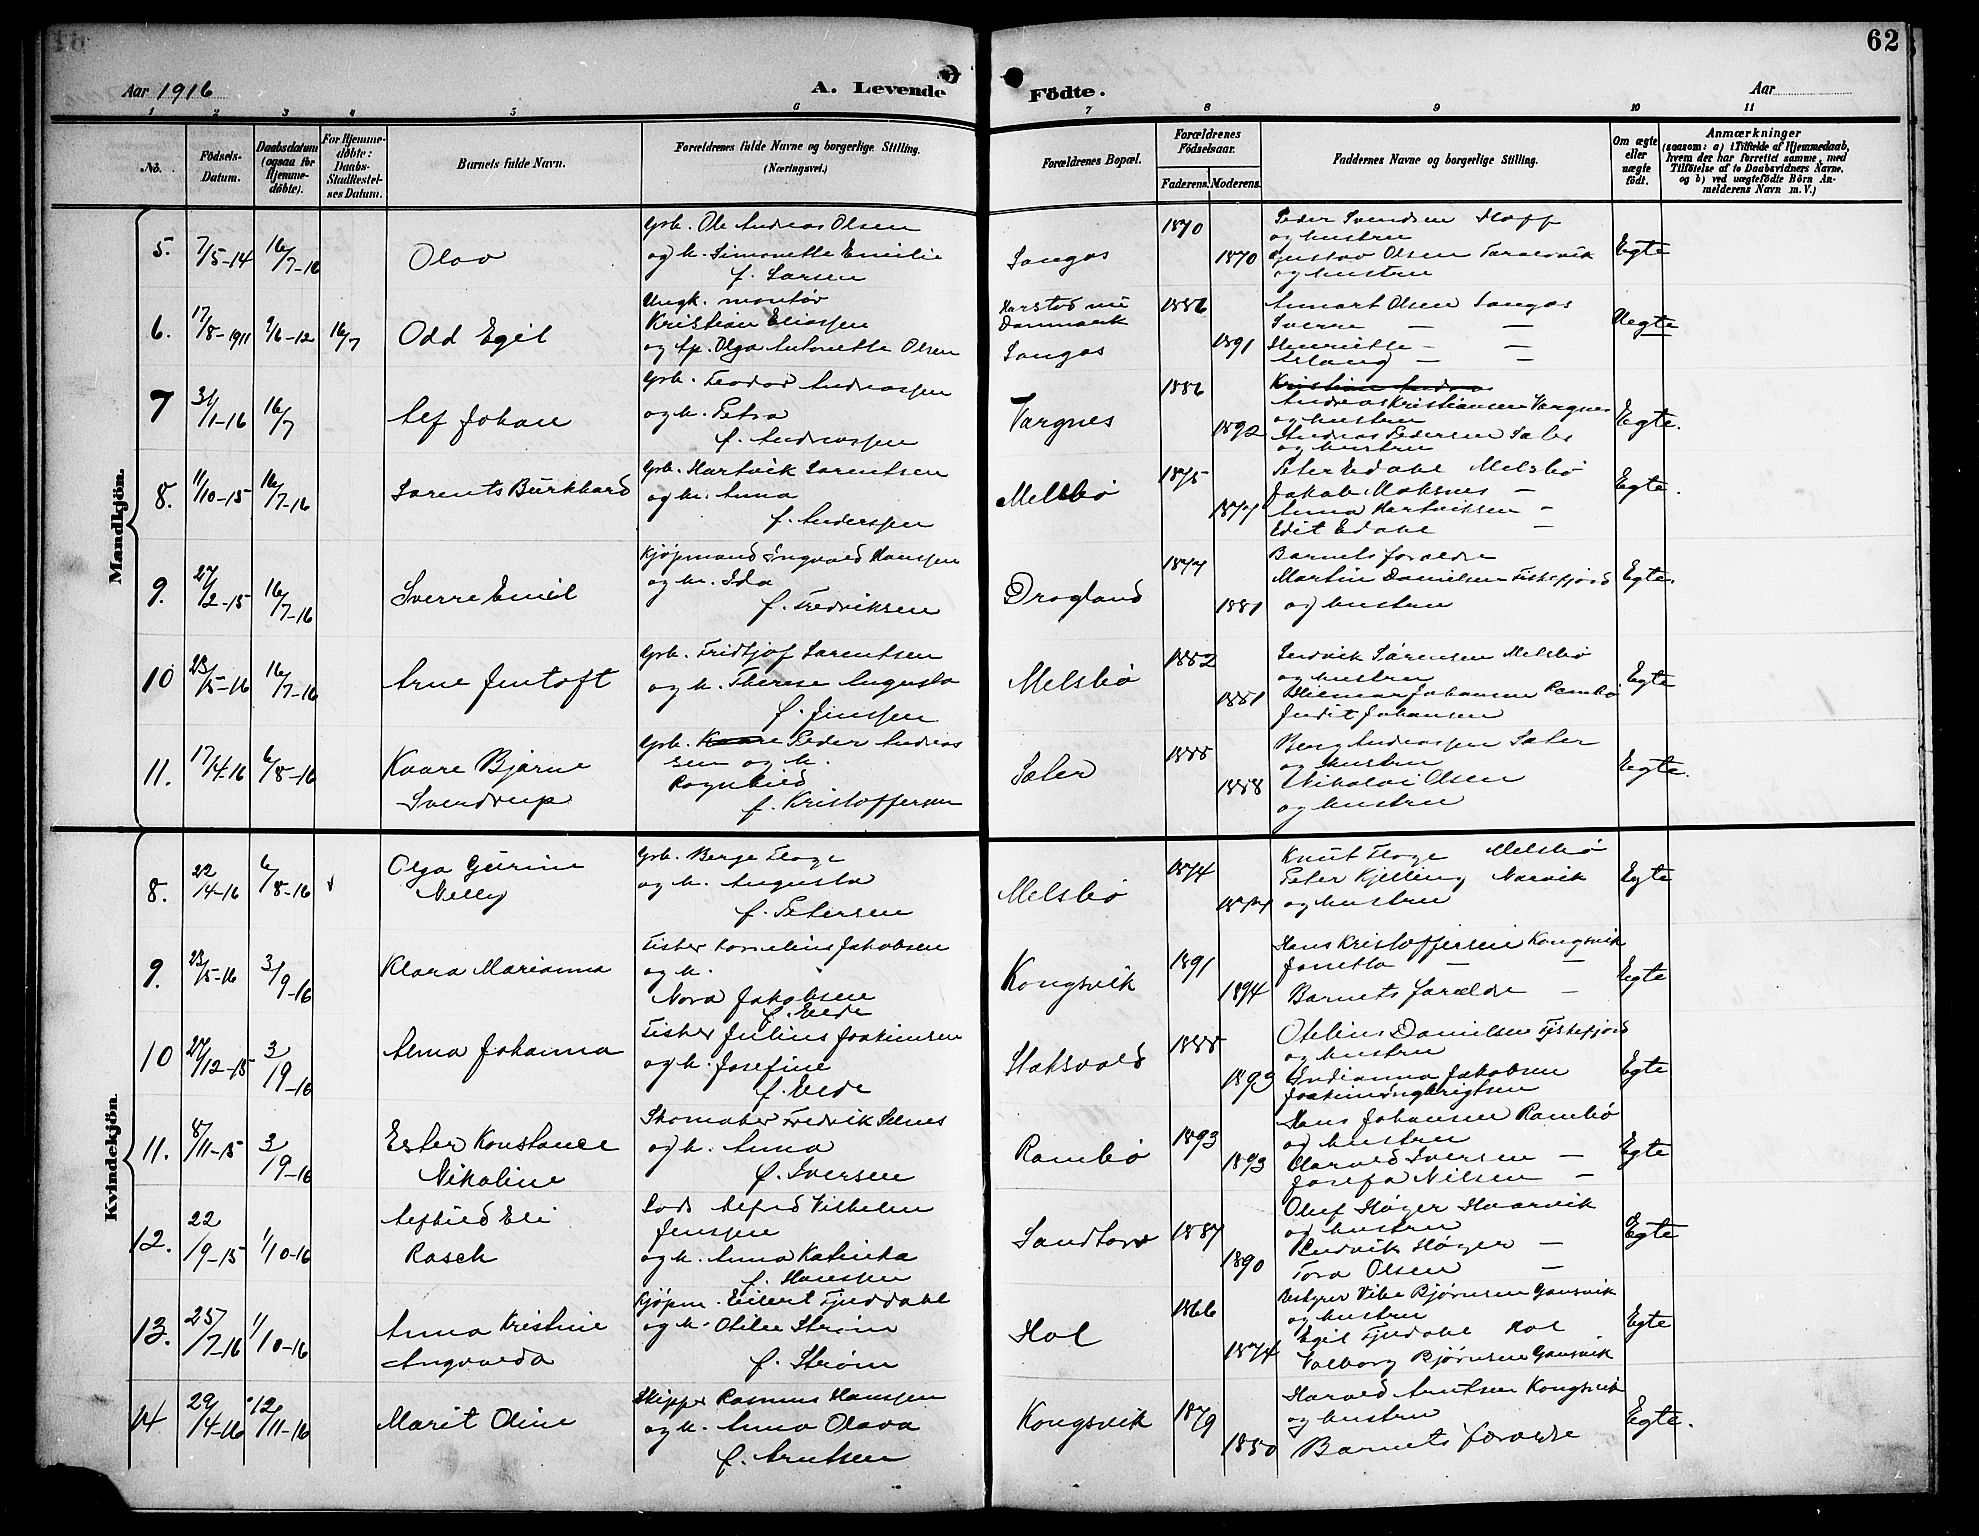 62
Aar 1916
A. Levende Födte.
Aar
1 2 3 4 5 6 7 8 9 10 11
No.
Födsels-Datum.
Daabsdatum (ogsaa for Hjemmedöbte).
For Hjemmedöbte: Daabs-Stadfæstelses Datum.
Barnets fulde Navn.
Forældrenes fulde Navne og borgerlige Stilling. (Næringsvei.)
Forældrenes Bopæl.
Forældrenes Födselsaar.
Faderens. Moderens.
Faddernes Navne og borgerlige Stilling.
Om ægte eller uægte födt.
Anmærkninger
(saasom: a) i Tilfælde af Hjemmedaab, hvem der har forrettet samme, med Tilföielse af to Daabsvidners Navne, og b) ved uægtefödte Börn Anmelderens Navn m. V.)
Mandkjön.
5. 7/5-14 16/7-16 Olav
Grb. Ole Andreas Olsen
og h. Simonette Emilie
f. Larsen
Sangas 1870 1870
Peder Svendsen
og hustru
Gustav Olsen
og hustru
Egte
6. 17/8-1911 9/6-12 16/7 Odd Egil
Ungk. montør
Kristian Eliassen
og Ap. Olga Antonette Olsen
Harstad nu
Danmark
Sangas 1886 1891
Annart Olsen Sangas
Sverre — —
Henriette — —
Erling — —
Uegte
7 31/1-16 16/7 Alf Johan
Grb. Teodor Andreassen
og h. Petra
f. Andreassen
Vargnes 1886 1892
Kristian Andrea
Andreas Kristiansen Vargnes
og hustru
Andreas Pedersen Sæter
og hustru
Egte.
8. 11/10-15 16/7-16 Larents Burkhard
Grb. Hartvik Larentsen
og h. Anna
f. Anderssen
Melsbø 1875 1877
Peter Edahl Melsbø
Jakob Moksnes —
Anna Hartviksen -
Edit Edahl —
Egte.
9. 27/2-15 16/7-16 Sverre Emil
Kjøpmand Ingvald Hanssen
og h. Ida
f. Fredriksen
Dragland 1877 1881
Barnets forældre
Martin Danielsen Fiskefjord
og hustru
Egte.
10 23/5-16 16/7-16 Arne Jentoft
Grb. Fridtjof Larentsen
og h. Therese Augusta
f. Jenssen
Melsbø 1882 1881
Ludvik Sørensen Melsbø
og hustru
Hilmar Johansen Rambø
Judit Johansen
Egte
11. 17/4-16 6/8-16 Kaare Bjarne
Svendrup
Grb. Kaare Peder Andreas
sen og h.
Ragnhild
f. Kristoffersen
Sæter 1885 1888
Berg Andreassen Sæter
og hustru
Nikolai Olsen
og hustru
Egte.
Kvindekjön.
8. 22/4-16 6/8-16 Olga Gurine
Nelly
Grb. Berge Floge
og h. Augusta
f. Petersen
Melsbø 1874 1877
Knut Floge Melsbø
Peter Kjelling Narvik
og hustru
Egte
9. 23/5-16 3/9-16 Klara Marianna
Fisker Kornelius Jakobsen
og h.
Nora Jakobsen
f. Eide
Kongsvik 1891 1894
Hans Kristoffersen Kongsvik
Janetta — —
Barnets forældre —
Egte
10 27/12-15 3/9-16 Alma Johanna
Fisker Julius Joakimsen
og h. Josefine
f. Eide
Staksvold 1885 1893
Otelius Danielsen Fiskefjord
og hustru
Indianna Jakobsen
Joakim Ingebrigtsen
Egte
11. 8/11-15 3/9-16 Ester Konstance
Nikoline
Skomaker Fredrik Selnes
og h. Anna
f. Iversen
Rambø 1893 1893
Hans Johansen Rambø
og hustru
Harald Iversen —
Josefa Nilsen —
Egte
12. 22/9-15 1/10-16 Alfhild Eli
Rasch
Lods Alfred Vilhelm
Jenssen
og h. Anna Katinka
f. Hanssen
Sandtorv 1887 1890
Oluf Høger Haarvik
og hustru
Ludvik Høger —
Tora Olsen —
Egte
13. 25/7-16 1/10-16 Anna Kristine
Ingvarda
Kjøpm. Eilert Fjeldahl
og h. Otilie Strøm
f. Strøm
Hol 1866 1874
Bestyrer Vibe Bjørnsen Gausvik
og hustru
Egil Fjeldahl Hol
Valborg Bjørnsen Gausvik
Egte
14 29/4-16 12/11-16 Marit Oline
Skipper Rasmus Hanssen
og h. Anna Olava
f. Arntsen
Kongsvik 1879 1880
Harald Arntsen Kongsvik
og hustru
Barnets forældre
Egte.